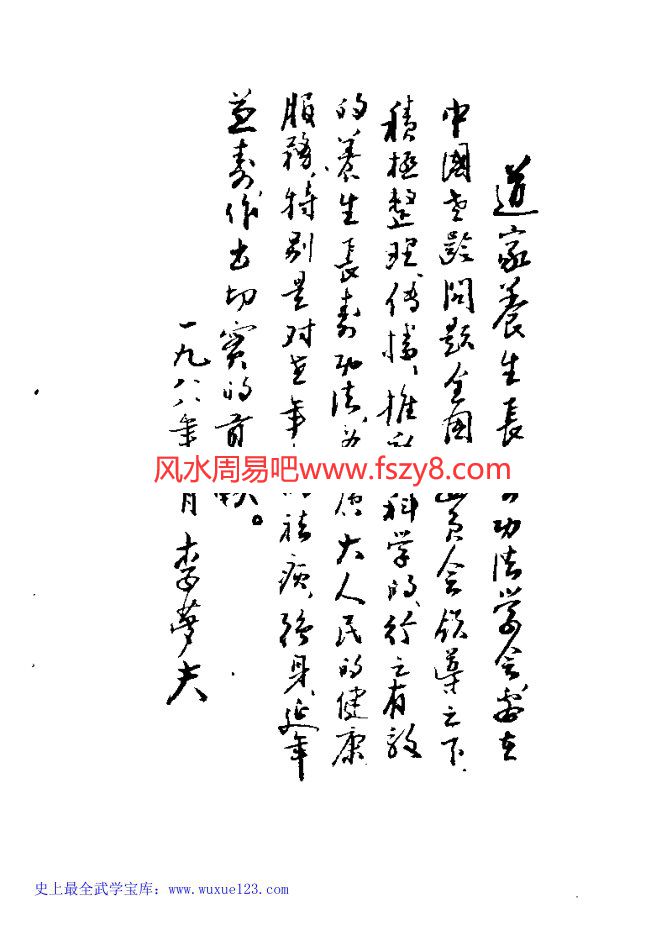 道家養生長功法学会要在
中國老龄問题全国員会领導之下
積極整理、傳播、推科学的、行之有效
的養生長寿功法、为大人民的健康
服務、特别是对老年祛病、强身、延年
益寿作出切实的貢献。
一九八八年月 李夢夫
风水周易吧www.fszy8.com
史上最全武学宝库：www.wuxue123.com